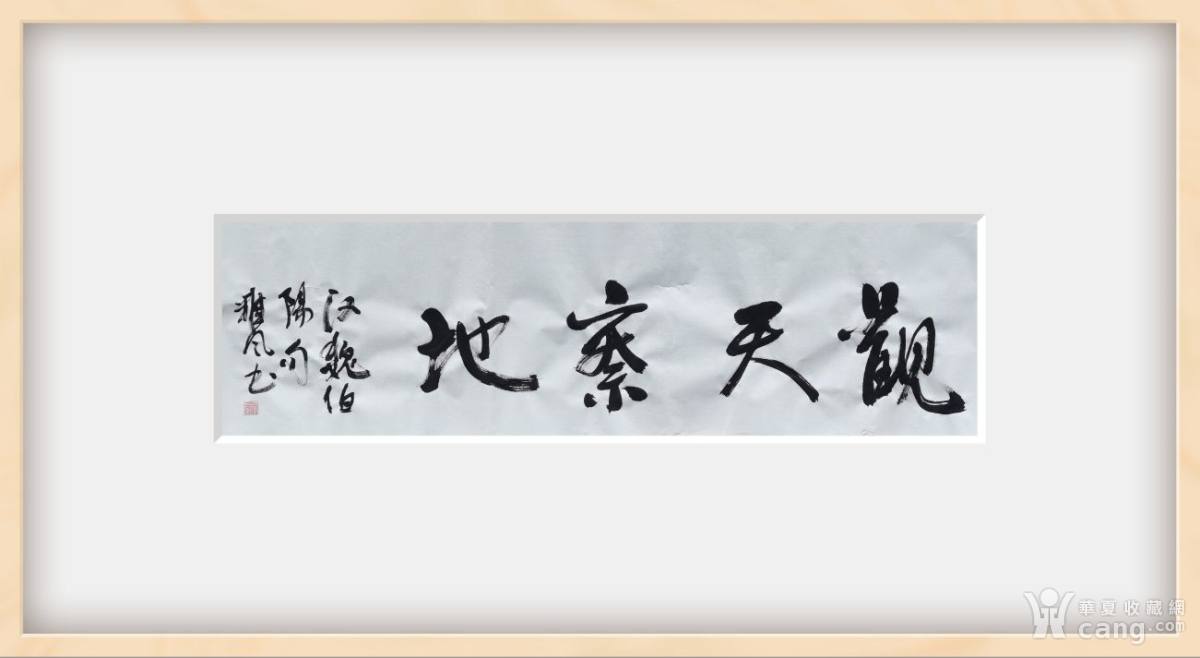 觀天察地
汉魏伯
陽句
雅风书
華夏收藏網
cang.com